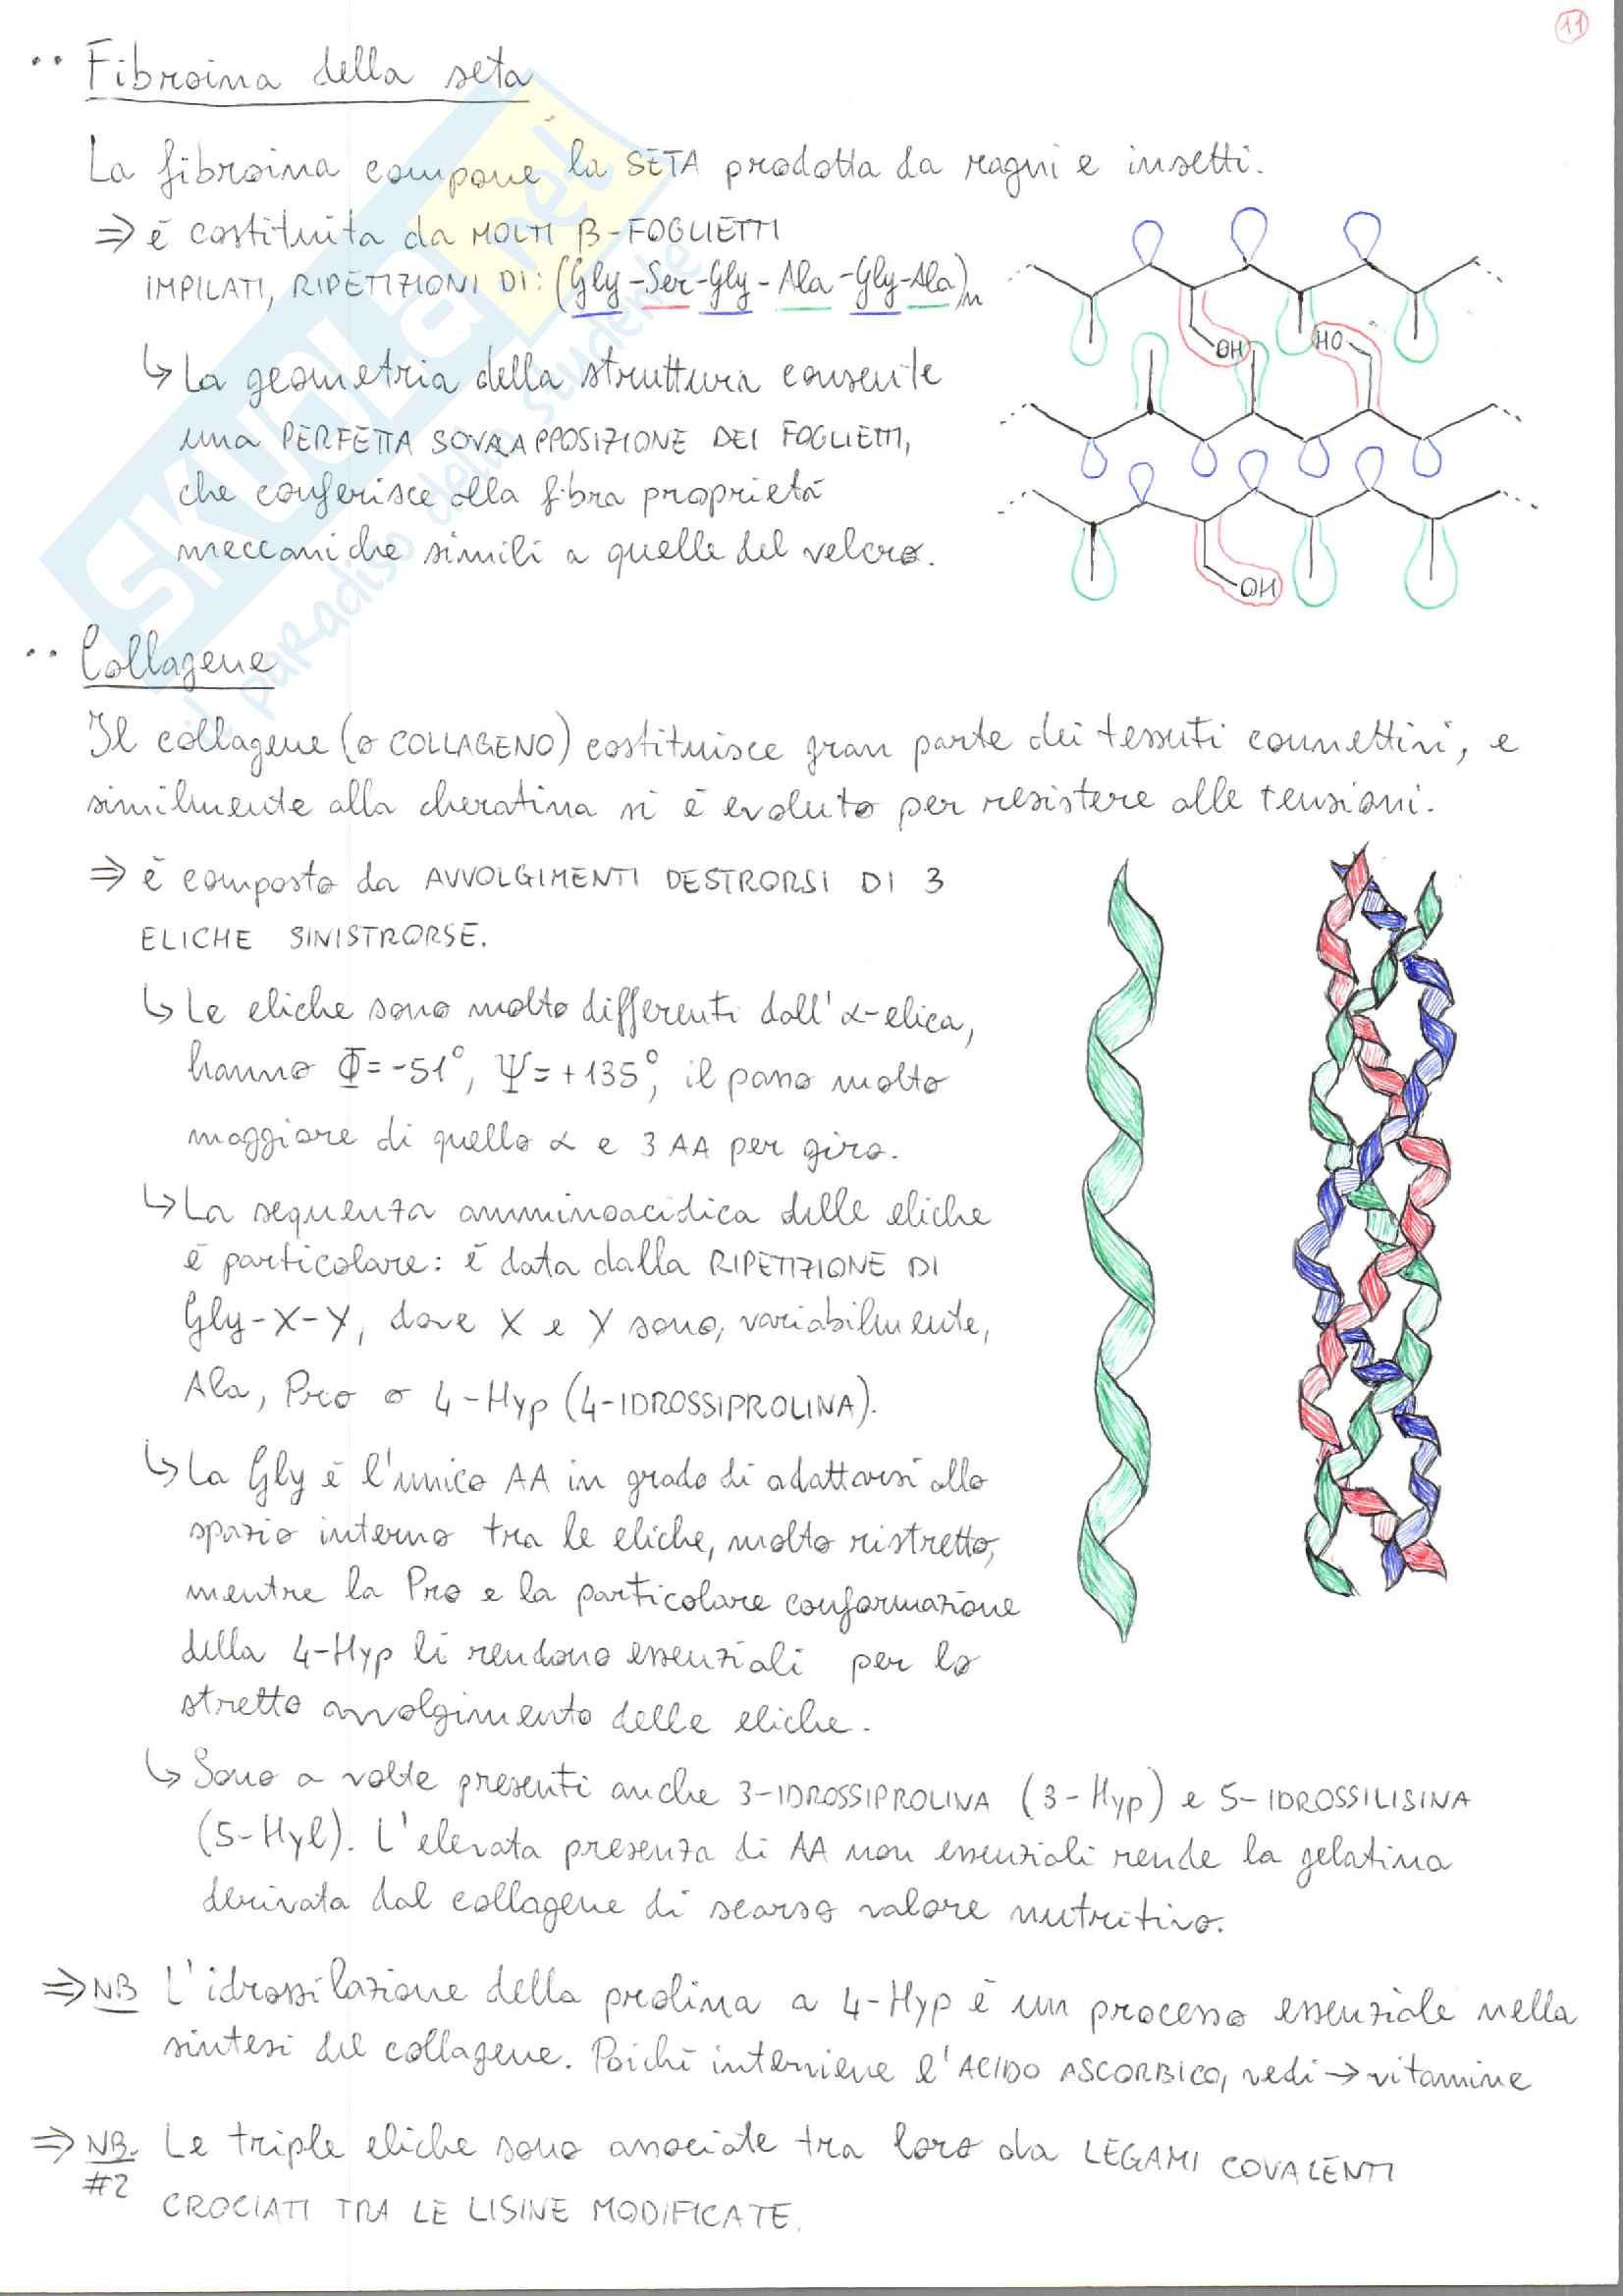 11
Fibroina della seta
La fibroina compone la SETA prodotta da ragni e insetti.
⇒ è costituita da MOLTI β-FOGLIETTI
IMPILATI, RIPETIZIONI DI: (Gly-Ser-Gly-Ala-Gly-Ala)n
OH
HO
↳ La geometria della struttura consente
una PERFETTA SOVRAPPOSIZIONE DEI FOGLIETTI,
che conferisce alla fibra proprietà
meccaniche simili a quelle del velcro.
OH
Collagene
Il collagene (o COLLAGENO) costituisce gran parte dei tessuti connettivi, e
similmente alla cheratina si è evoluto per resistere alle tensioni.
⇒ è composto da AVVOLGIMENTI DESTRORSI DI 3
ELICHE SINISTRORSE.
↳ Le eliche sono molto differenti dall'α-elica,
hanno Φ=-51°, Ψ=+135°, il passo molto
maggiore di quello α e 3 AA per giro.
↳ La sequenza amminoacidica delle eliche
è particolare: è data dalla RIPETIZIONE DI
Gly-X-Y, dove X e Y sono, variabilmente,
Ala, Pro o 4-Hyp (4-IDROSSIPROLINA).
↳ La Gly è l'unico AA in grado di adattarsi allo
spazio interno tra le eliche, molto ristretto,
mentre la Pro e la particolare conformazione
della 4-Hyp li rendono essenziali per lo
stretto avvolgimento delle eliche.
↳ Sono a volte presenti anche 3-IDROSSIPROLINA (3-Hyp) e 5-IDROSSILISINA
(5-Hyl). L'elevata presenza di AA non essenziali rende la gelatina
derivata dal collagene di scarso valore nutritivo.
⇒ NB L'idrossilazione della prolina a 4-Hyp è un processo essenziale nella
sintesi del collagene. Poiché interviene l'ACIDO ASCORBICO, vedi → vitamine
⇒ NB. Le triple eliche sono associate tra loro da LEGAMI COVALENTI
#2
CROCIATI TRA LE LISINE MODIFICATE.
SKUOLA.net
il paradiso dello studente